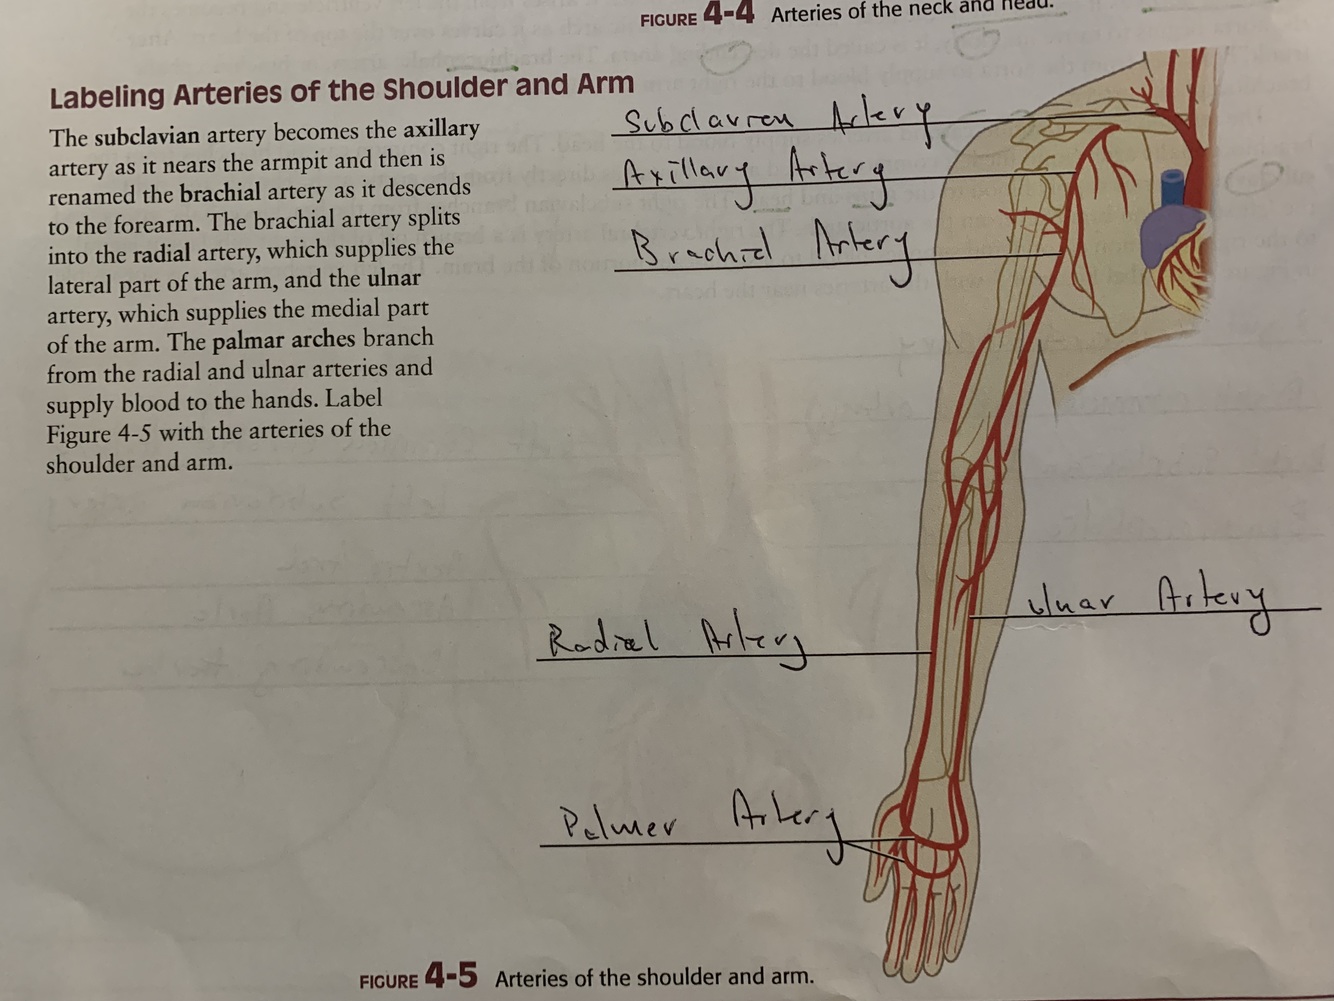 FIGURE 4-4 Arteries of the neck and head.
Labeling Arteries of the Shoulder and Arm
The subclavian artery becomes the axillary
artery as it nears the armpit and then is
renamed the brachial artery as it descends
to the forearm. The brachial artery splits
into the radial artery, which supplies the
lateral part of the arm, and the ulnar
artery, which supplies the medial part
of the arm. The palmar arches branch
from the radial and ulnar arteries and
supply blood to the hands. Label
Figure 4-5 with the arteries of the
shoulder and arm.
Subclavien Artery
Axillary Artery
Brachial Artery
Ulnar Artery
Radial Artery
Palmer Artery
FIGURE 4-5 Arteries of the shoulder and arm.